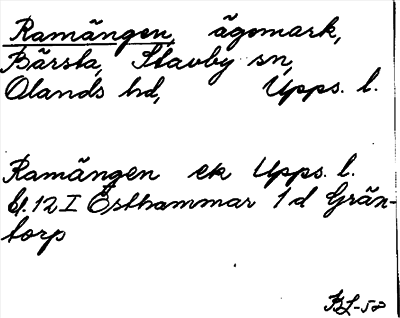 Ramängen, ägomark,
Bärsta, Stavby sn,
Olands hd, Upps. l.
Ramängen ek Upps. l.
bl. 12 I Östhammar 1 d Grän-
torp
BL-58